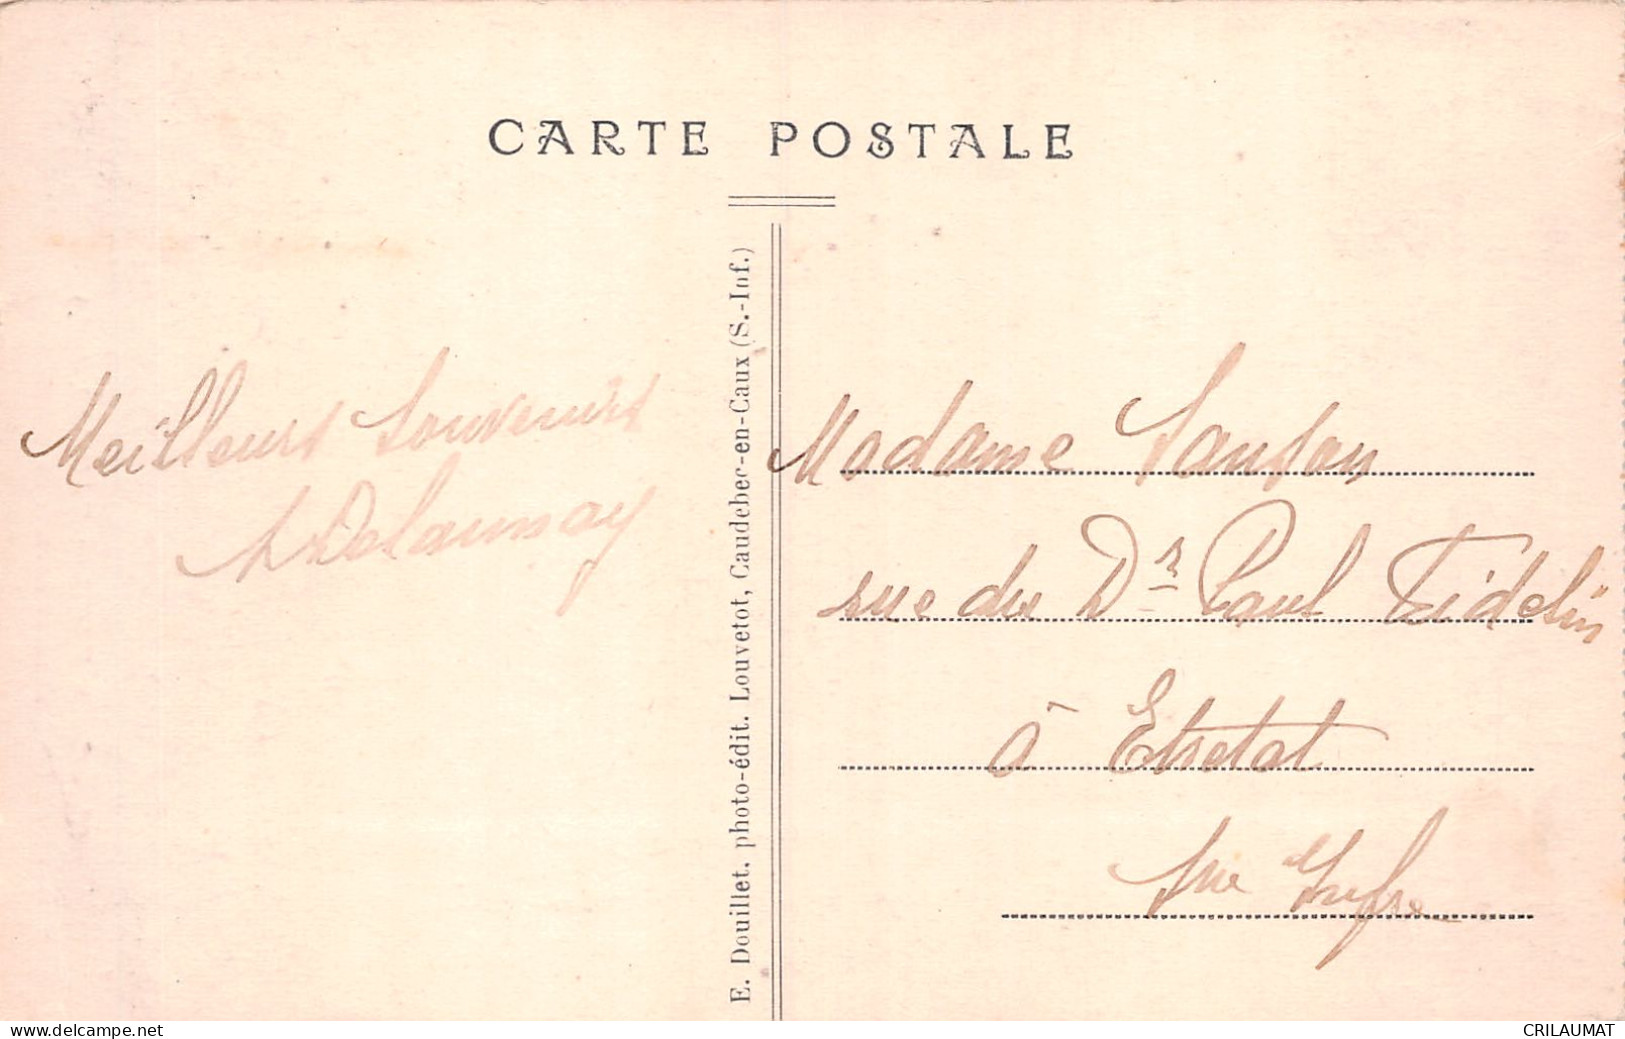 CARTE POSTALE
Meilleurs souvenirs
Delaunay
E. Douillet. photo-édit. Louvetot, Caudebec-en-Caux (S.-Inf.)
Madame Sanson
rue du Dr Paul Fidelin
à Etretat
Sne Infre
www.delcampe.net
CRILAUMAT